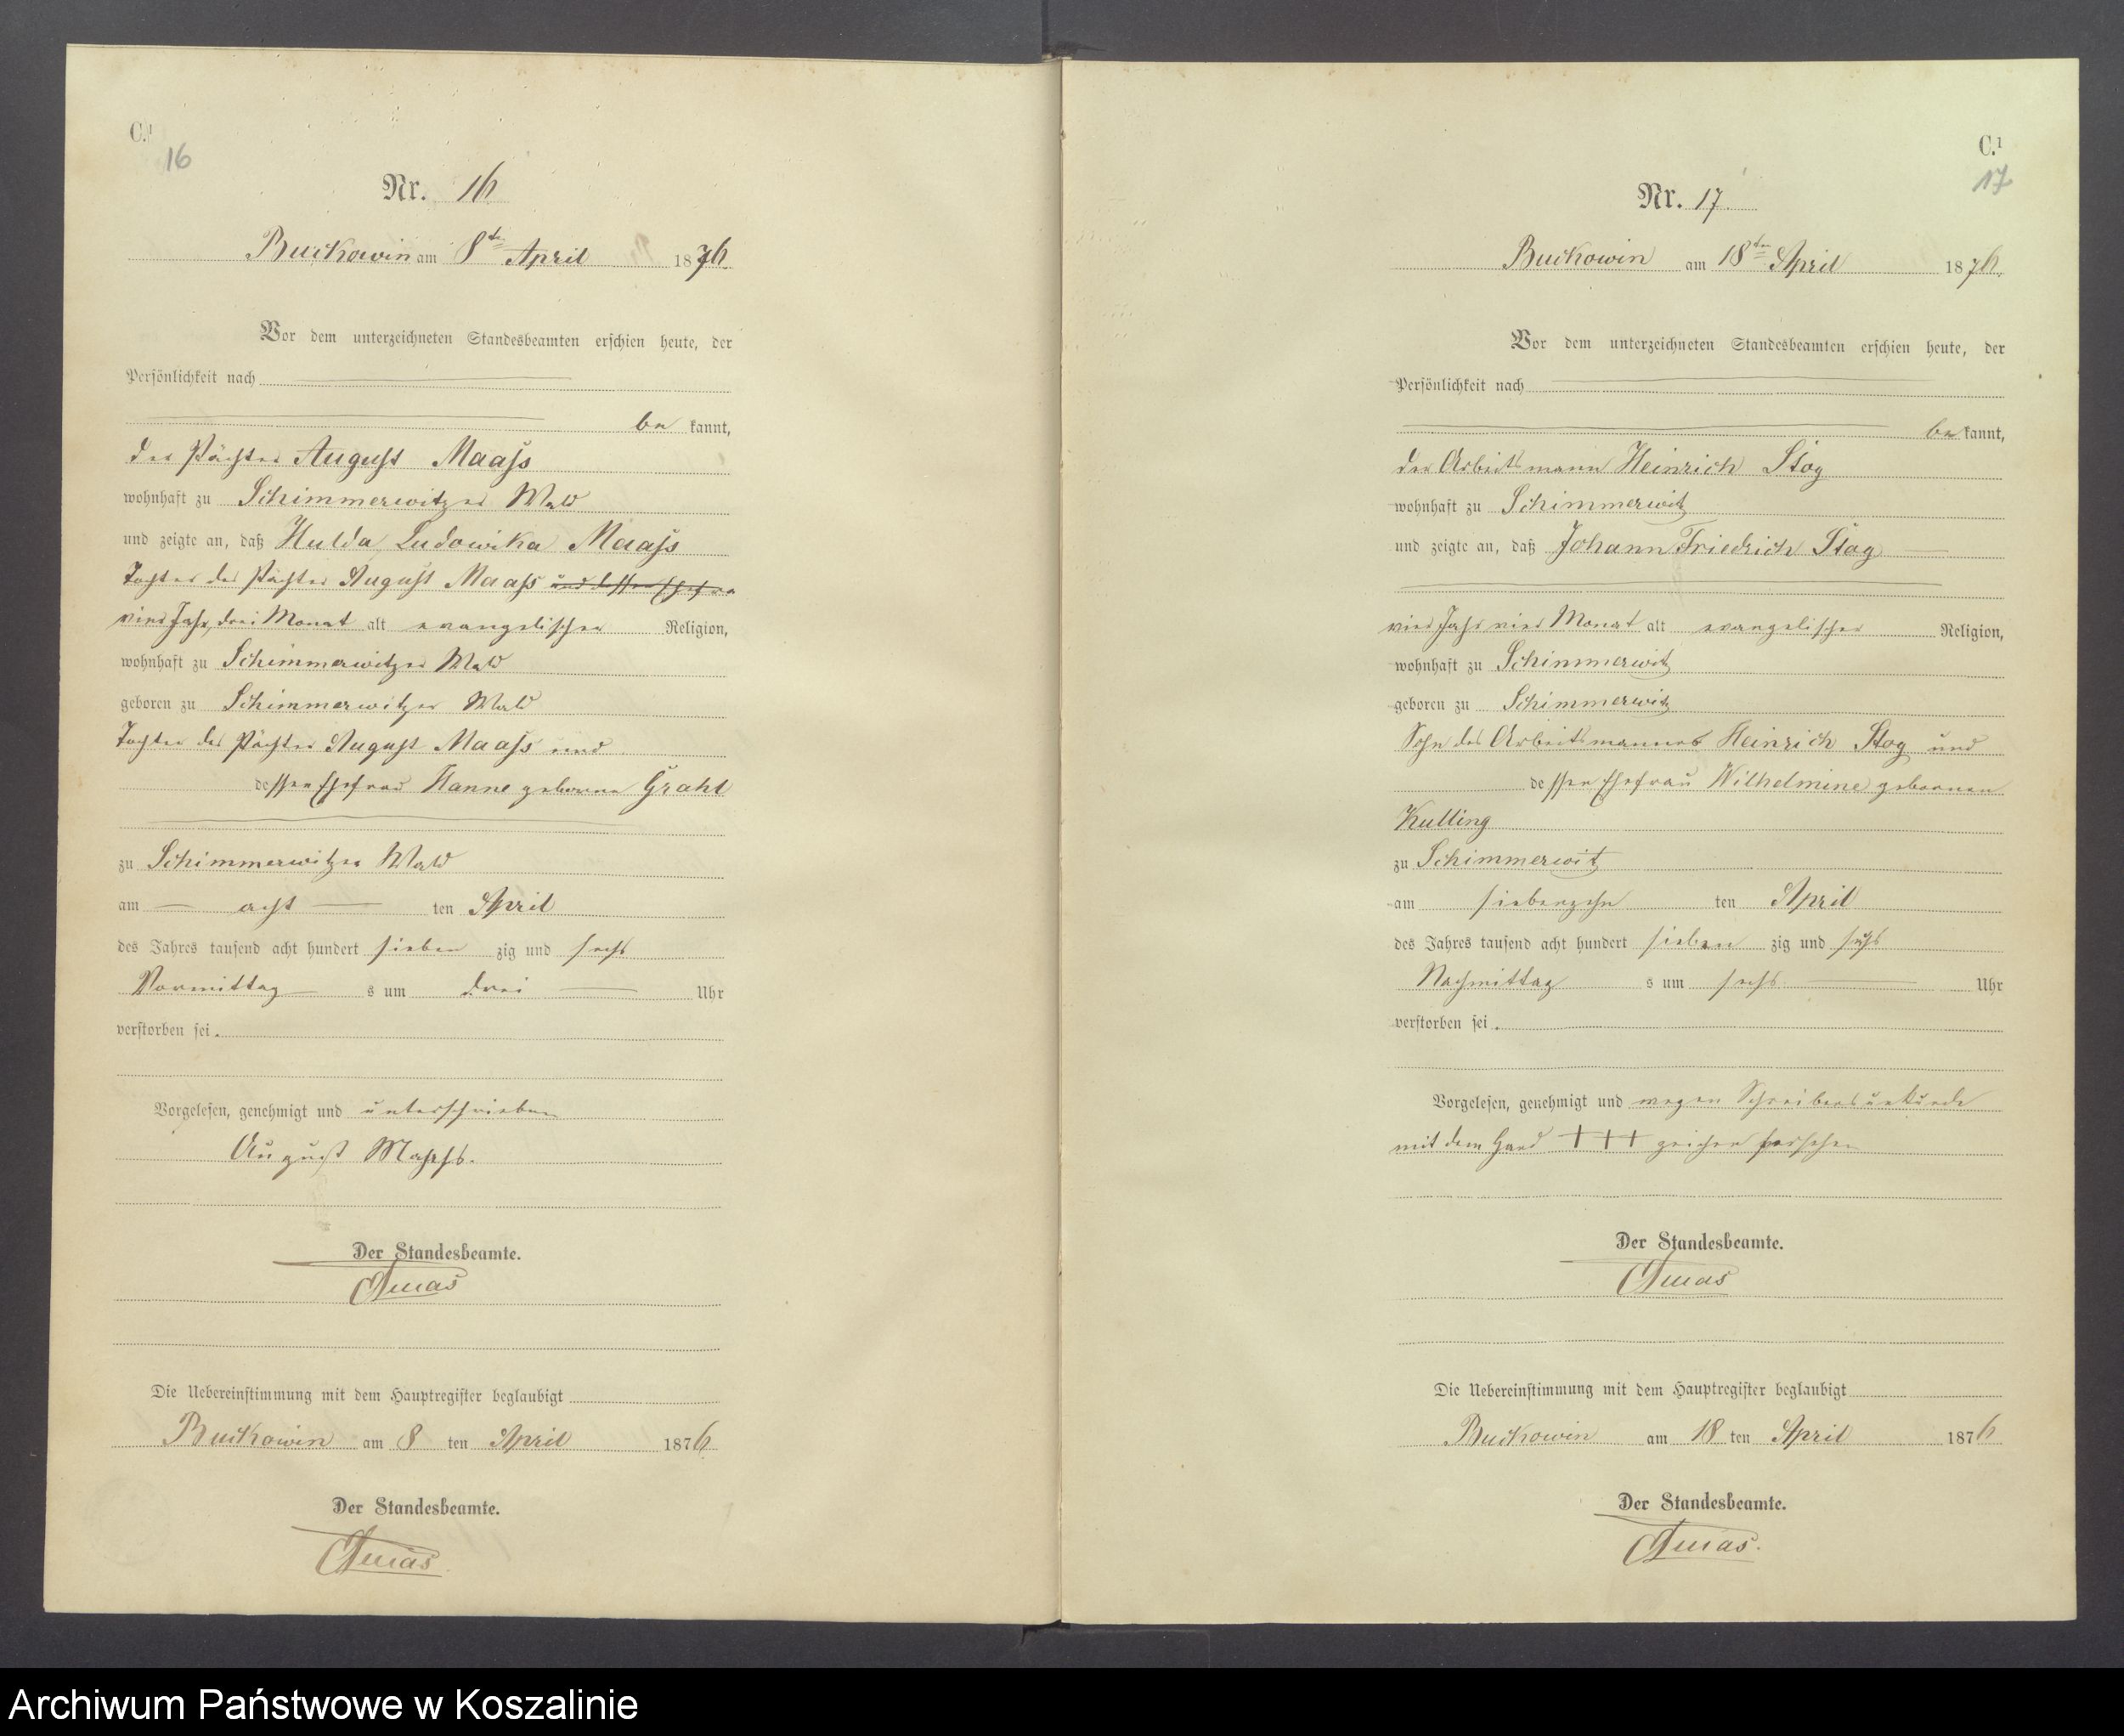 C.¹
16
Nr. 16
Buckowin am 8ten April 1876.
Vor dem unterzeichneten Standesbeamten erschien heute, der
Persönlichkeit nach
be kannt,
der Pächter August Maaß
wohnhaft zu Schimmerwitzer Wald
und zeigte an, daß Hulda Ludowika Maaß
Tochter des Pächter August Maaß und dessen Ehefrau
vier Jahr, drei Monat alt evangelischer Religion,
wohnhaft zu Schimmerwitzer Wald
geboren zu Schimmerwitzer Wald
Tochter des Pächter August Maaß und
dessen Ehefrau Hanne geborene Grahl
zu Schimmerwitzer Wald
am acht ten April
des Jahres tausend acht hundert sieben zig und sechs
Vormittag s um drei Uhr
verstorben sei.
Vorgelesen, genehmigt und unterschrieben
August
Der Standesbeamte.
Die Uebereinstimmung mit dem Hauptregister beglaubigt
Buckowin am 8 ten April 1876.
Der Standesbeamte.
C.¹
17
Nr. 17.
Buckowin am 18ten April 1876.
Vor dem unterzeichneten Standesbeamten erschien heute, der
Persönlichkeit nach
be kannt,
der Arbeitsmann Heinrich Stog
wohnhaft zu Schimmerwitz
und zeigte an, daß Johann Friedrich Stog
vier Jahr vier Monat alt evangelischer Religion,
wohnhaft zu Schimmerwitz
geboren zu Schimmerwitz
Sohn des Arbeitsmannes Heinrich Stog und
dessen Ehefrau Wilhelmine geborenen
Kulling
zu Schimmerwitz
am siebenzehn ten April
des Jahres tausend acht hundert sieben zig und sechs
Nachmittag s um sechs Uhr
verstorben sei.
Vorgelesen, genehmigt und wegen Schreibensunkunde
mit dem Hand +++ zeichen versehen
Der Standesbeamte.
Die Uebereinstimmung mit dem Hauptregister beglaubigt
Buckowin am 18 ten April 1876
Der Standesbeamte.
Archiwum Państwowe w Koszalinie